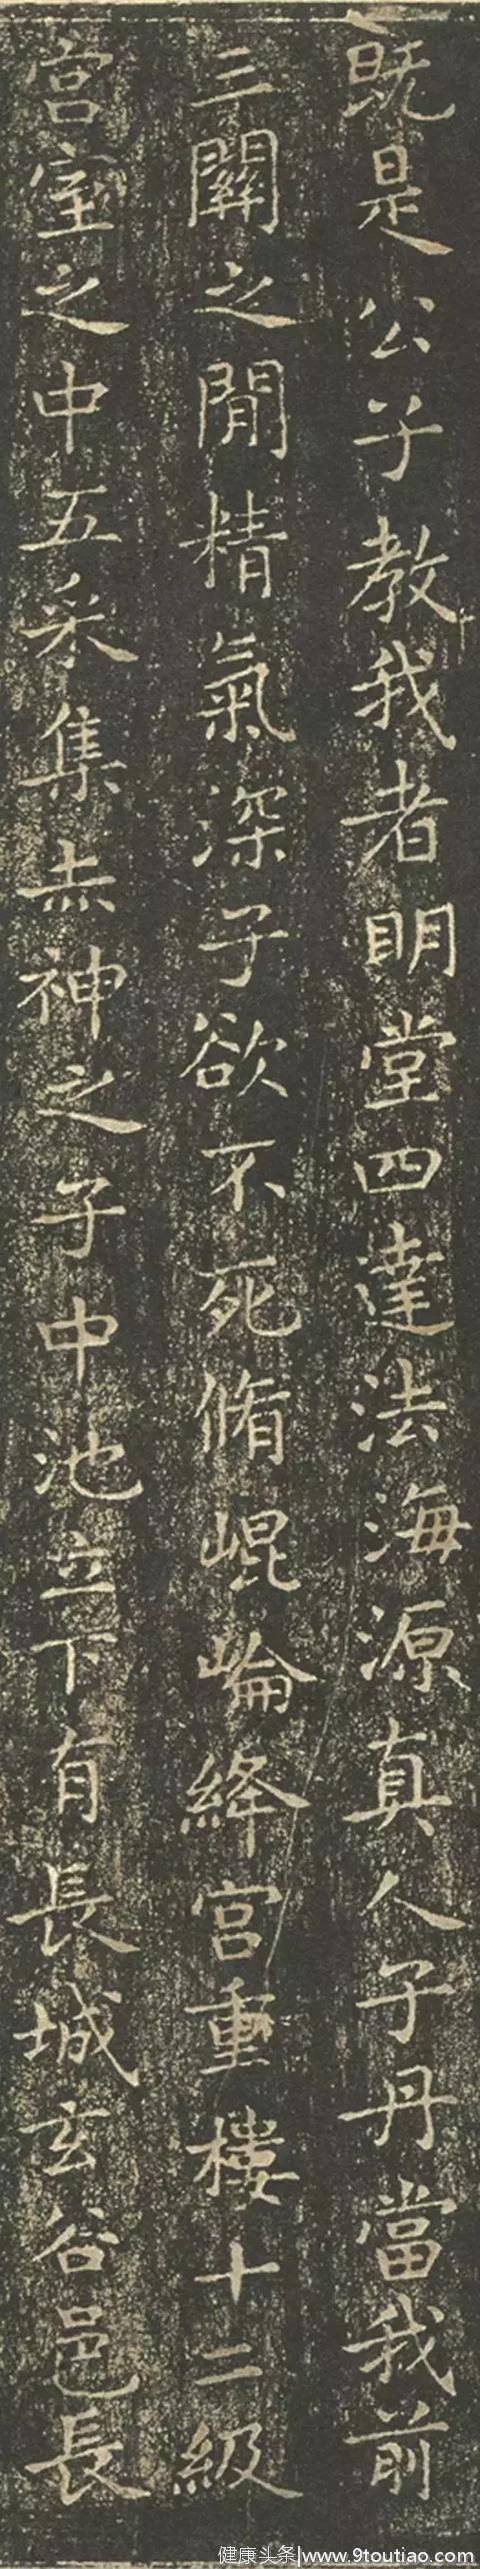 既是公子教我者明堂四達法海源真人子丹當我前
三關之間精氣深子欲不死脩崐崘絳宫重樓十二級
宫室之中五采集赤神之子中池立下有長城玄谷邑長
健康头条|www.9toutiao.com